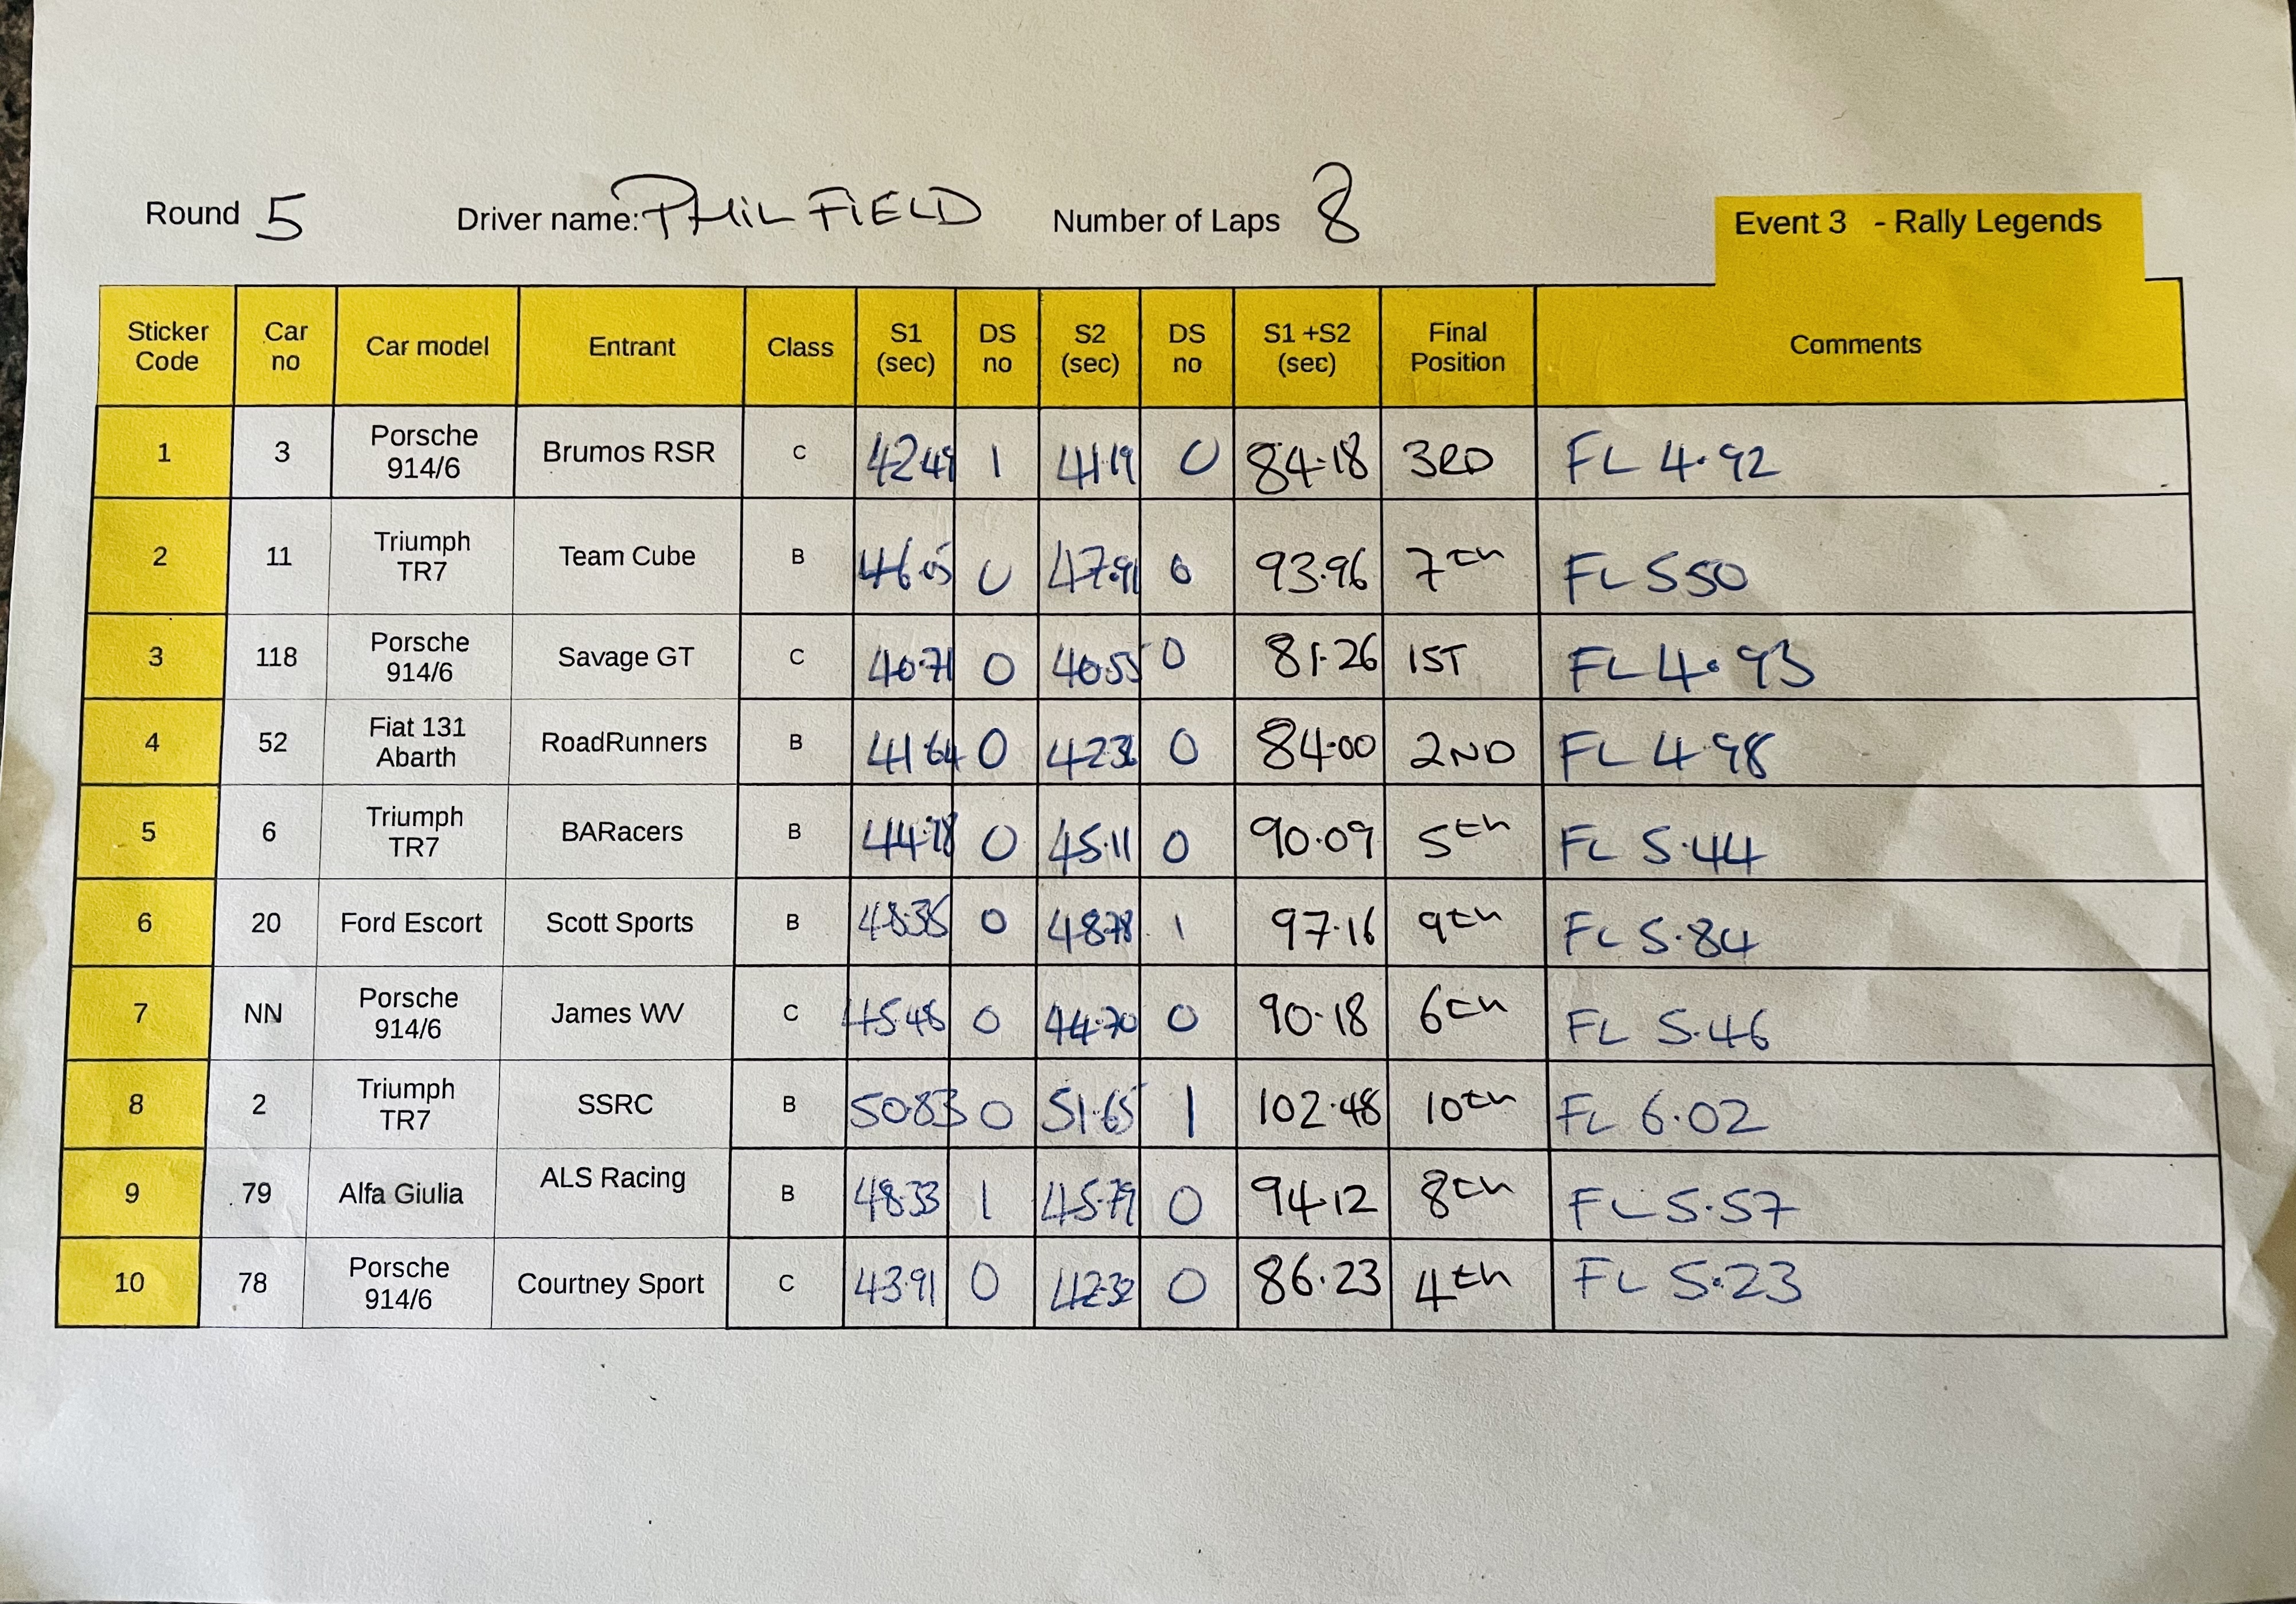 Round 5 Driver name: PHIL FIELD Number of Laps 8
Event 3 - Rally Legends
Sticker Code Car no Car model Entrant Class S1 (sec) DS no S2 (sec) DS no S1 +S2 (sec) Final Position Comments
1 3 Porsche 914/6 Brumos RSR C 42.49 1 41.19 0 84.18 3RD FL 4.92
2 11 Triumph TR7 Team Cube B 46.05 0 47.91 0 93.96 7th FL 5.50
3 118 Porsche 914/6 Savage GT C 40.71 0 40.55 0 81.26 1ST FL 4.93
4 52 Fiat 131 Abarth RoadRunners B 41.64 0 42.36 0 84.00 2ND FL 4.98
5 6 Triumph TR7 BARacers B 0 45.11 0 90.09 5th FL 5.44
6 20 Ford Escort Scott Sports B 48.38 0 48.78 1 97.16 9th FL 5.84
7 NN Porsche 914/6 James WV C 45.48 0 44.70 0 90.18 6th FL 5.46
8 2 Triumph TR7 SSRC B 50.83 0 51.65 1 102.48 10th FL 6.02
9 79 Alfa Giulia ALS Racing B 48.33 1 45.79 0 94.12 8th FL 5.57
10 78 Porsche 914/6 Courtney Sport C 43.91 0 42.32 0 86.23 4th FL 5.23